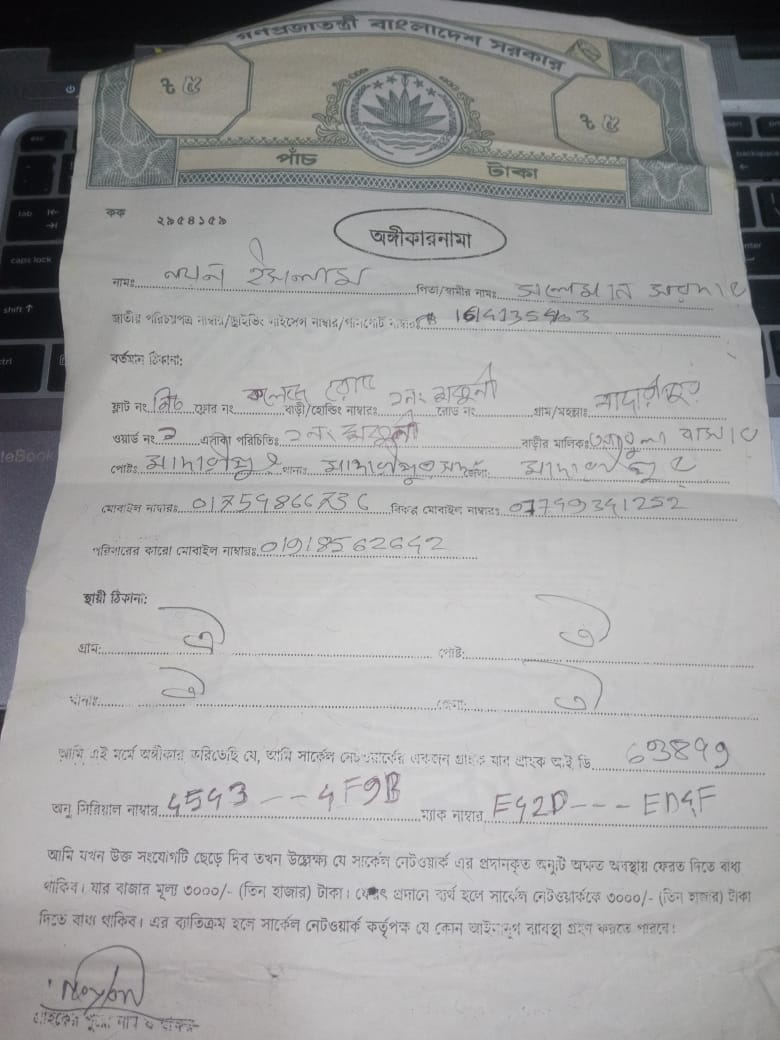 গণপ্রজাতন্ত্রী বাংলাদেশ সরকার
৳ ৫ ৳ ৫
পাঁচ টাকা
কক ২৯৫৪১৫৯
অঙ্গীকারনামা
নামঃ নয়ন ইসলাম পিতা/স্বামীর নামঃ সলেমান সরদার
জাতীয় পরিচয়পত্র নাম্বার/ড্রাইভিং লাইসেন্স নাম্বার/পাসপোর্ট নাম্বারঃ
বর্তমান ঠিকানা:
ফ্লাট নং ফ্লোর নং কলেজ রোড বাড়ী/হোল্ডিং নাম্বারঃ ২নং শকুনী রোড নং গ্রাম/মহল্লাঃ মাদারীপুর
ওয়ার্ড নং ২ এলাকা পরিচিতিঃ ২নং শকুনী বাড়ীর মালিকঃ
পোষ্টঃ মাদারীপুর থানাঃ মাদারীপুর সদর জেলাঃ মাদারীপুর
মোবাইল নাম্বারঃ 01759866736 বিকল্প মোবাইল নাম্বারঃ 01749341252
পরিবারের কারো মোবাইল নাম্বারঃ 01918562642
স্থায়ী ঠিকানা:
গ্রাম: ঐ পোষ্ট: ঐ
থানাঃ ঐ জেলা: ঐ
আমি এই মর্মে অঙ্গীকার করিতেছি যে, আমি সার্কেল নেটওয়ার্কের একজন গ্রাহক যার গ্রাহক আই ডি 63899
অনু সিরিয়াল নাম্বার 4543---4F9B ম্যাক নাম্বার E42D---ED4F
আমি যখন উক্ত সংযোগটি ছেড়ে দিব তখন উল্লেক্ষ্য যে সার্কেল নেটওয়ার্ক এর প্রদানকৃত অনুটি অক্ষত অবস্থায় ফেরত দিতে বাধ্য
থাকিব। যার বাজার মূল্য ৩০০০/- (তিন হাজার) টাকা। ফেরৎ প্রদানে ব্যর্থ হলে সার্কেল নেটওয়ার্ককে ৩০০০/- (তিন হাজার) টাকা
দিতে বাধ্য থাকিব। এর ব্যতিক্রম হলে সার্কেল নেটওয়ার্ক কর্তৃপক্ষ যে কোন আইনানুগ ব্যবস্থা গ্রহণ করতে পারবে।
Noyon
গ্রাহকের পুরো নাম ও স্বাক্ষর